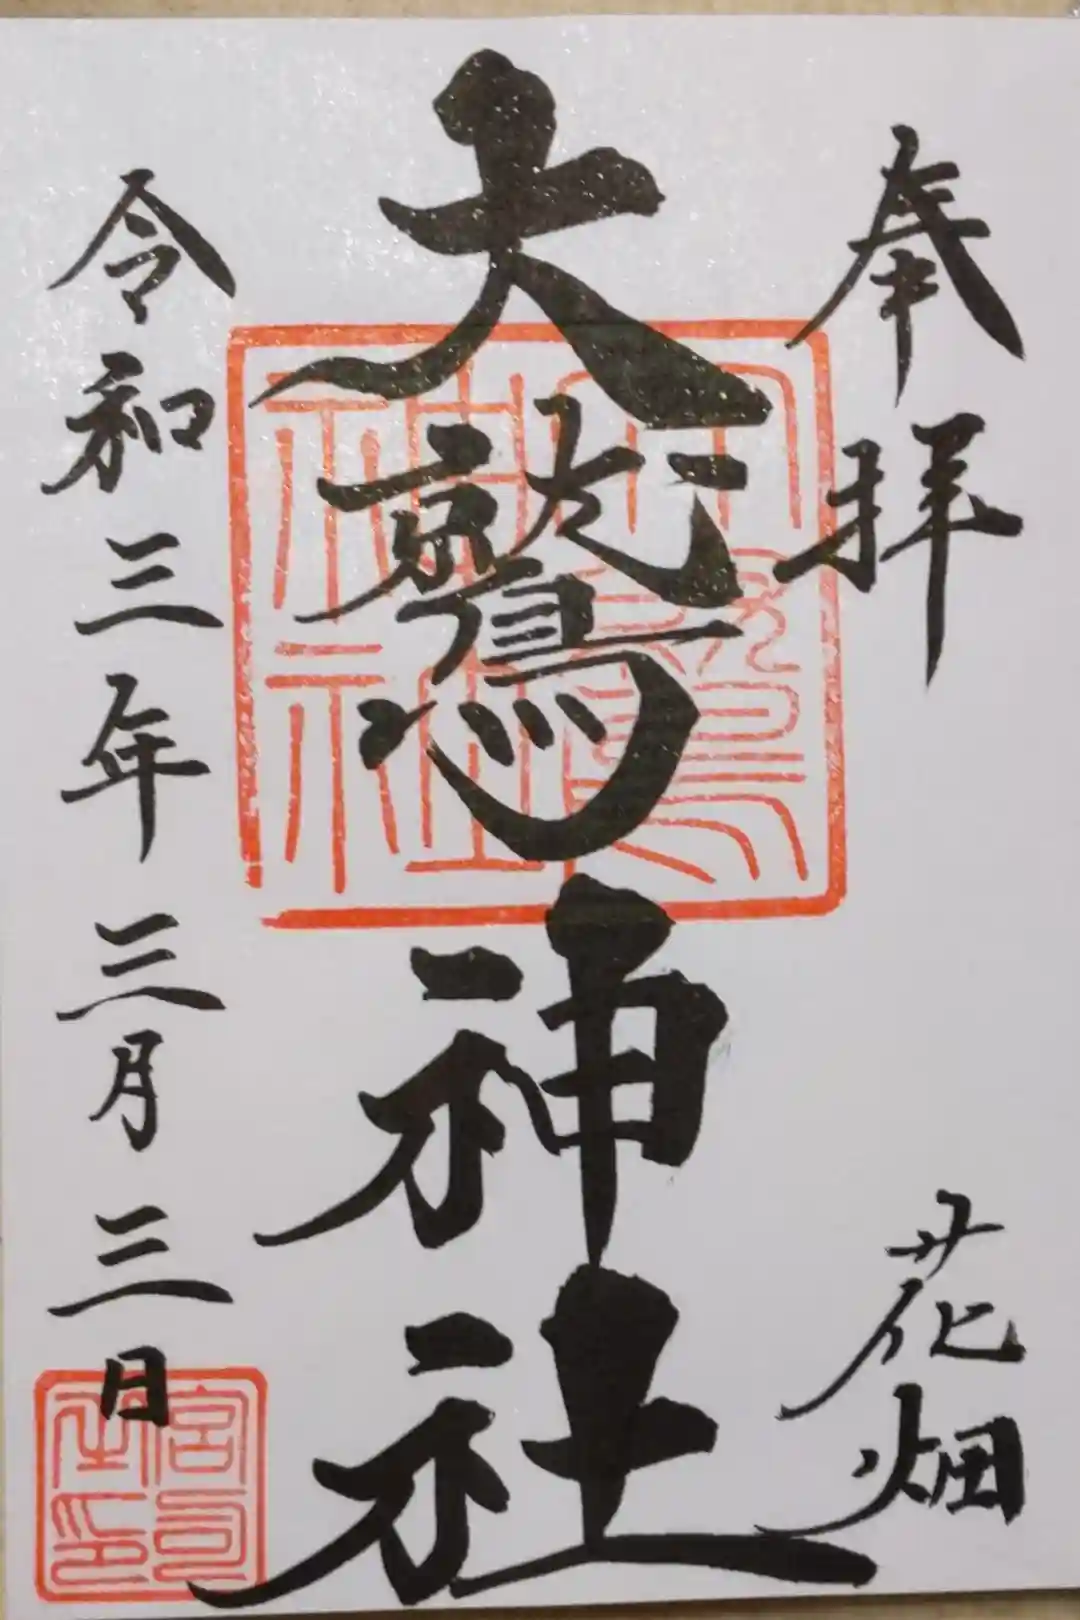 奉拝
花畑
大鷲神社
令和三年三月三日
大鷲神社
宮司之印